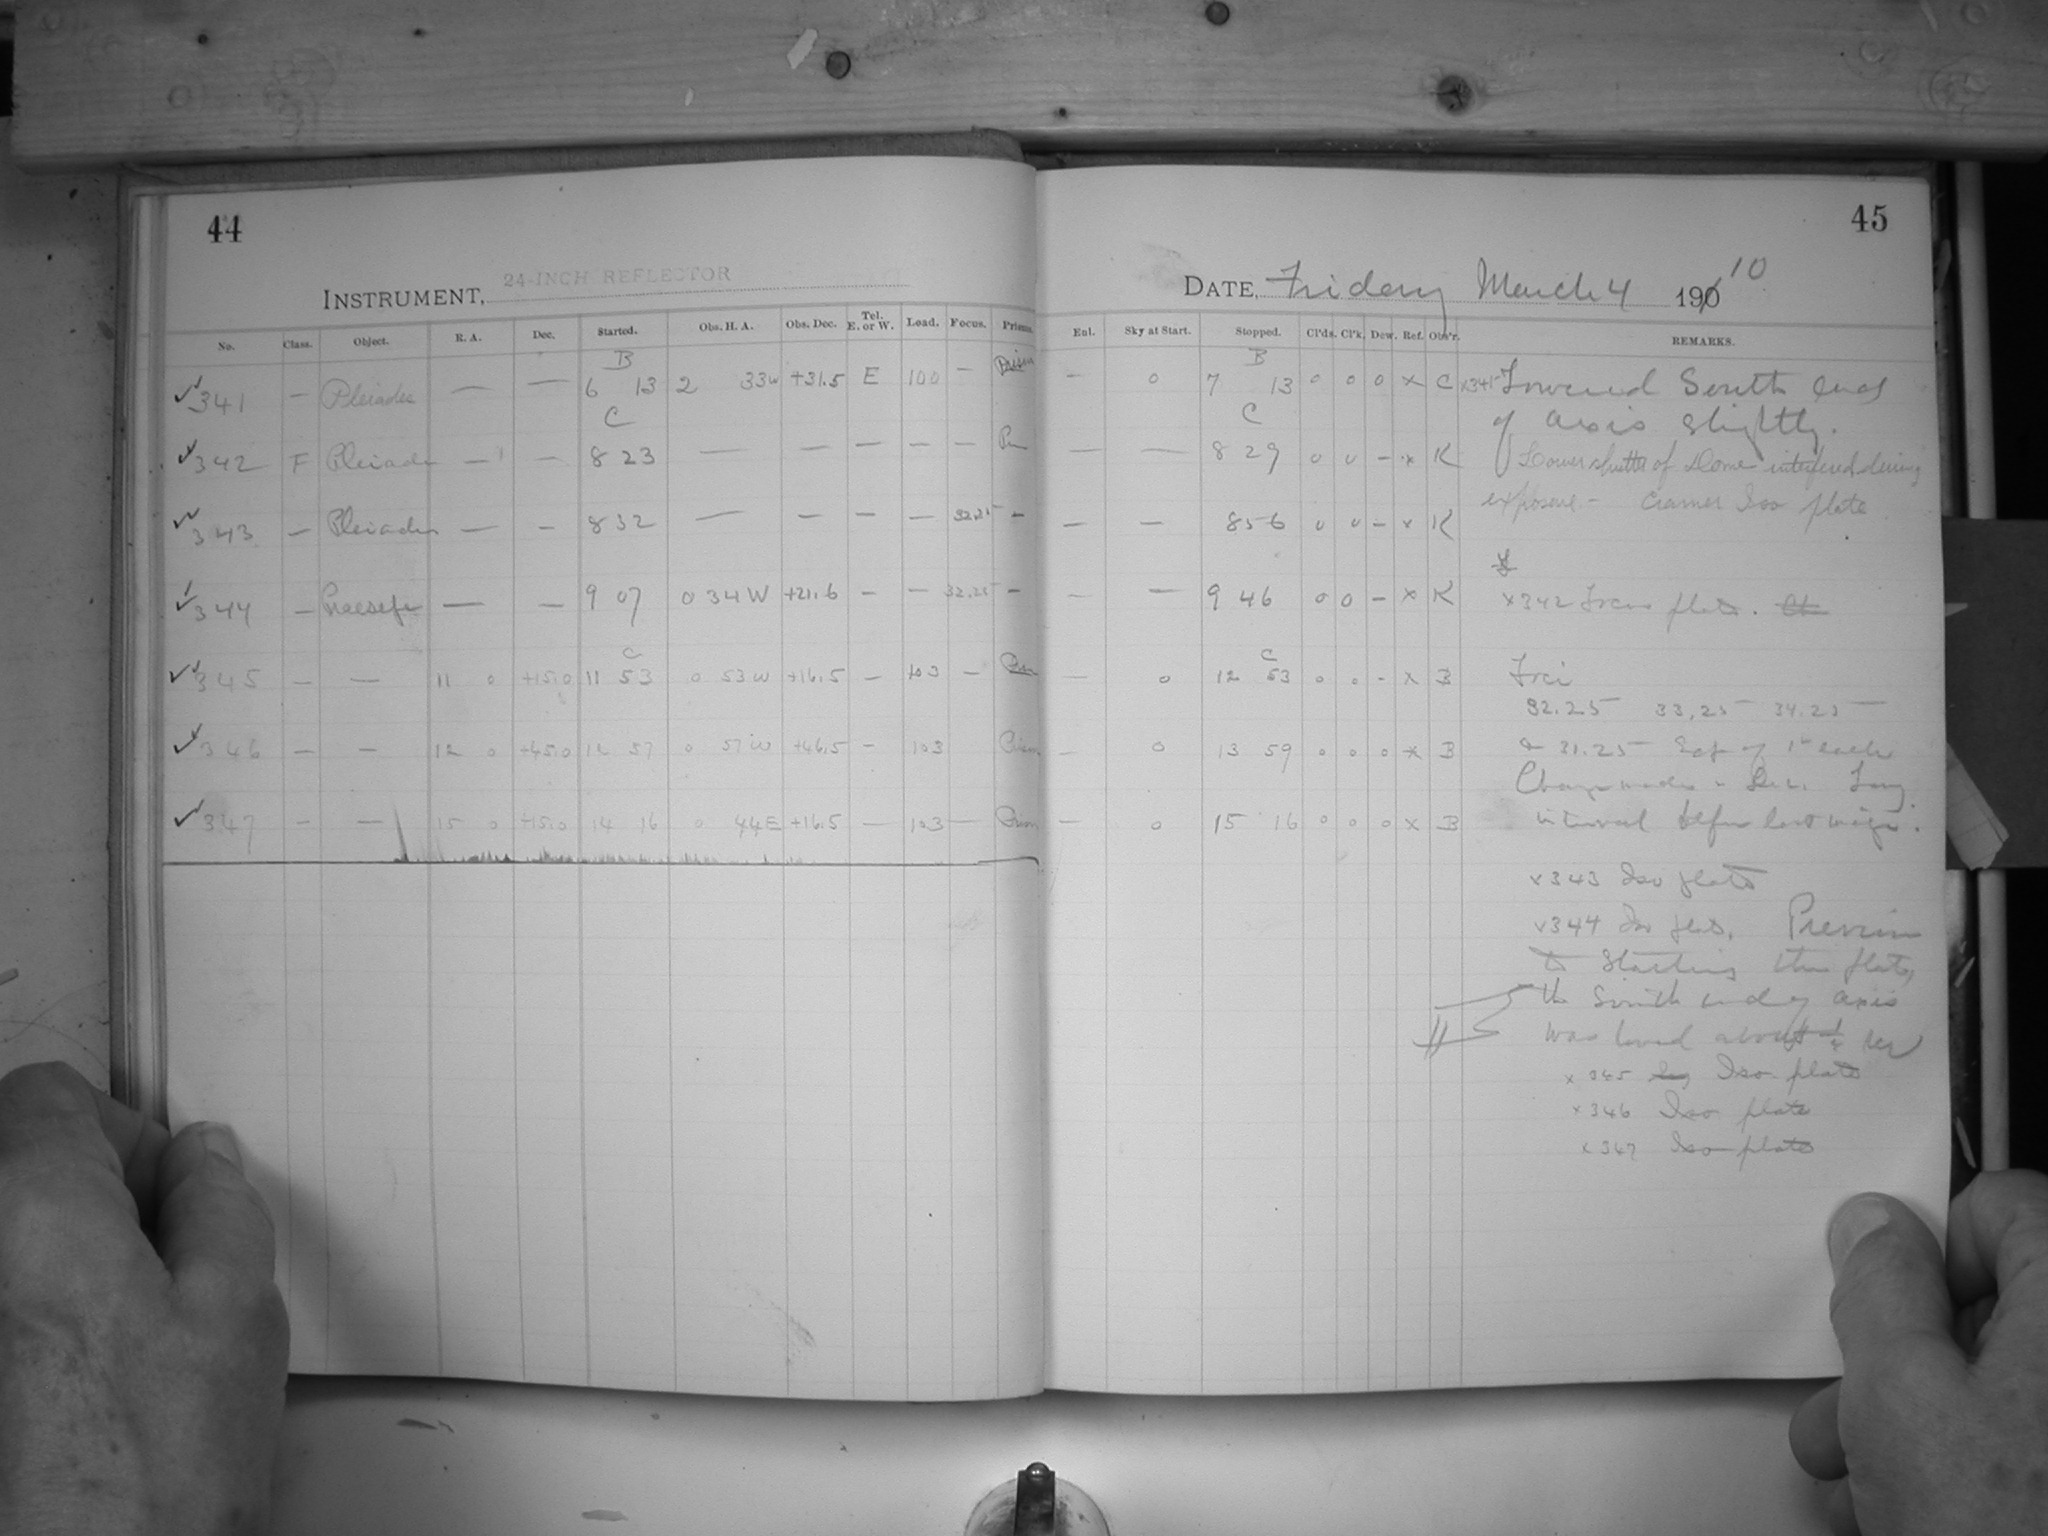 44
INSTRUMENT, 24-INCH REFLECTOR
No. Class. Object. R. A. Dec. Started. Obs. H. A. Obs. Dec. Tel. E. or W. Load. Focus. Prisms.
B
✓341 — Pleiades — — 6 13 2 33w +31.5 E 100 — Prism
C
✓342 F Pleiades — — 8 23 — — — — —
✓343 — Pleiades — — 8 32 — — — — 32.25 —
✓344 — Praesepe — — 9 07 0 34 W +21.6 — — 32.25 —
C
✓345 — — 11 0 +15.0 11 53 0 53w +16.5 — 103 —
✓346 — — 12 0 +45.0 12 57 0 57w +46.5 — 103 Prism
✓347 — — 15 0 +15.0 14 16 0 44E +16.5 — 103 — Prism
45
DATE, Friday March 4 190 10
Enl. Sky at Start. Stopped. Cl'ds. Cl'k. Dew. Ref. Obs'r. REMARKS.
B
— 0 7 13 0 0 0 x C x341 Lowered South end
C
of axis slightly.
— — 8 29 0 0 — x K Lower shutter of Dome interfered during
exposure — Cramer Iso plate
— — 8 56 0 0 — x K
— — 9 46 0 0 — x K x342 Focus plate.
C
— 0 12 53 0 0 - x B Foci
32.25 33.25 34.25
— 0 13 59 0 0 0 x B & 31.25 Exp of 1m each
Change made in Dec. Long
— 0 15 16 0 0 0 x B interval before last image.
x343 Iso plate
x344 Iso plate. Previous
to starting this plate,
the South end of axis
was about 1/4
x345 Iso plate
x346 Iso plate
x347 Iso plate